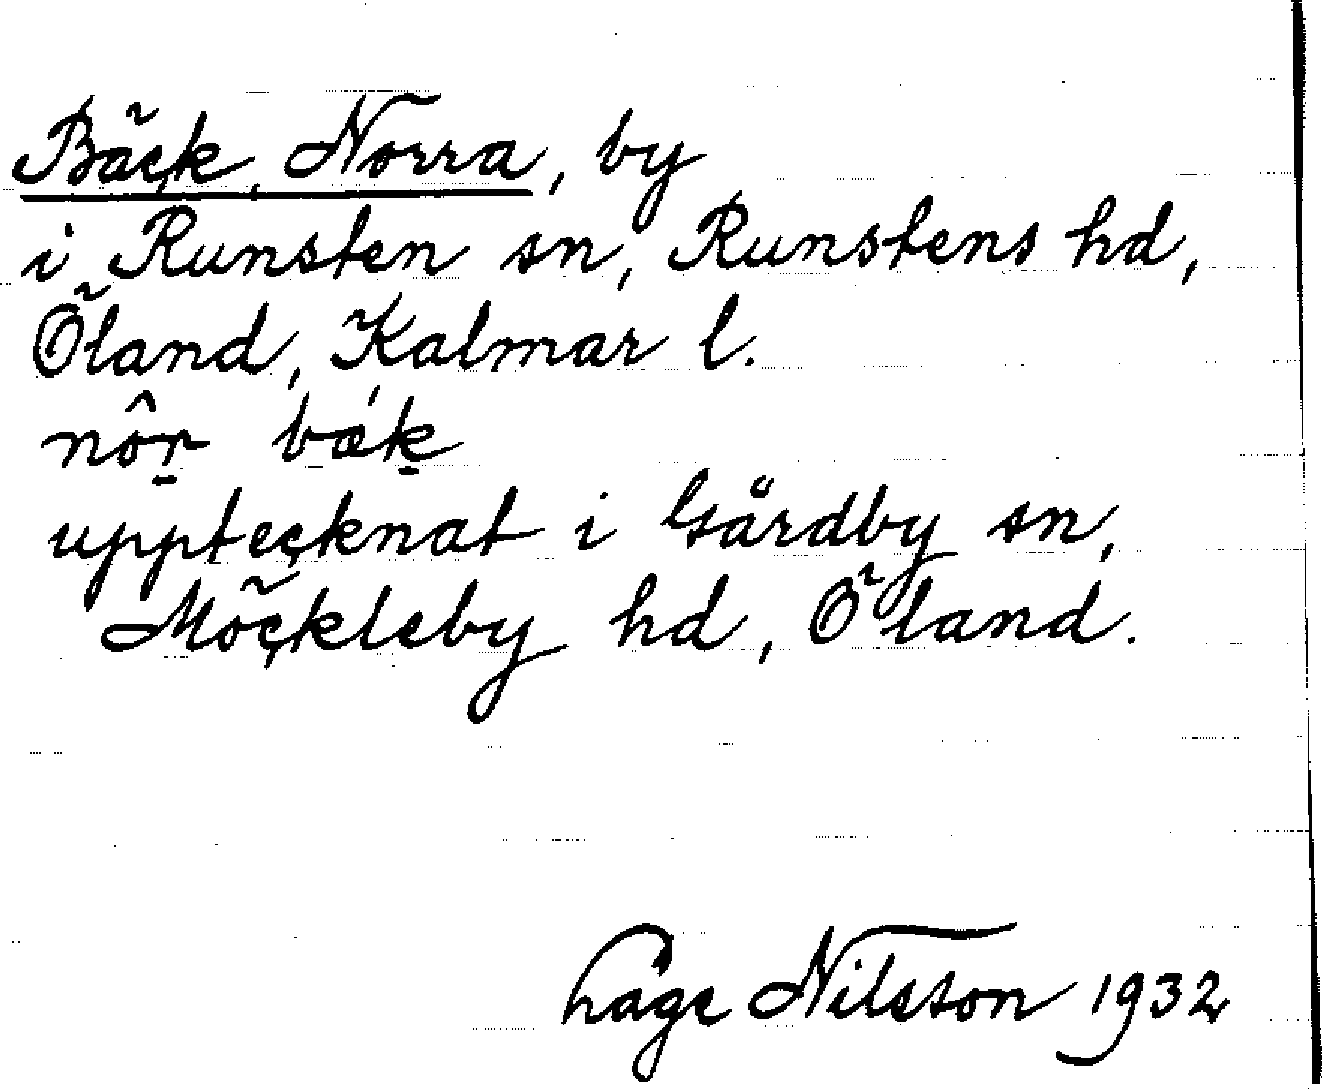 Bäck, Norra, by
i Runsten sn, Runstens hd,
Öland, Kalmar l.
nôr bæk
upptecknat i Gårdby sn,
Möckleby hd, Öland.
Håge Nilsson 1932